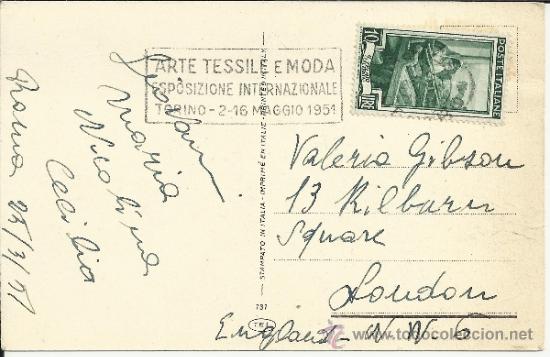 ARTE TESSILE E MODA
ESPOSIZIONE INTERNAZIONALE
TORINO - 2-16 MAGGIO 1951
POSTE ITALIANE
10
LIRE
Giovanni
Maria
Cecilia
Roma 25/3/51
STAMPATO IN ITALIA - IMPRIMÉ EN ITALIE - PRINTED IN ITALY
Valeria Gibson
13 Kilburn
Square
London
England - N W 6
737
www.todocoleccion.net